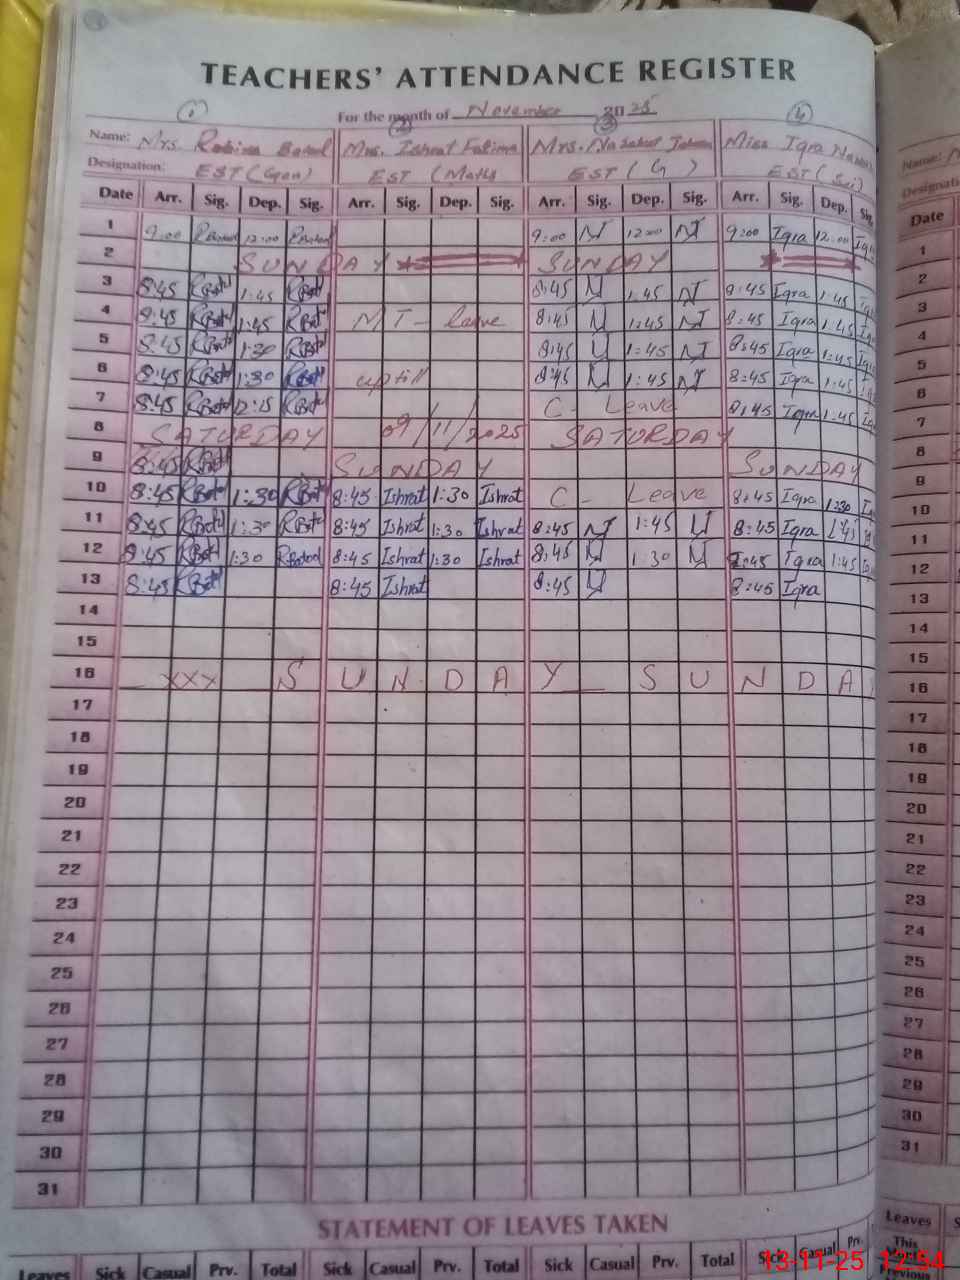 TEACHERS' ATTENDANCE REGISTER
For the month of November 2025
1 2 3 4
Name: Mrs. Robina Batool Mrs. Ishrat Fatima Mrs. Nazakat Miss Iqra
Designation: EST (Gen) EST (Maths EST (G ) EST (Sci)
Date Arr. Sig. Dep. Sig. Arr. Sig. Dep. Sig. Arr. Sig. Dep. Sig. Arr. Sig. Dep. Sig.
1 9:00 RBatool 12:00 RBatool 9:00 N 12:00 N 9:00 Iqra 12:00 Iqra
2 SUNDAY SUNDAY
3 8:45 RBatl 1:45 RBatl 8:45 N 1:45 N 8:45 Iqra 1:45
4 8:45 RBatl 1:45 RBatl MT- leave 8:45 N 1:45 N 8:45 Iqra 1:45
5 8:45 RBatl 1:30 RBatl 8:45 N 1:45 N 8:45 Iqra 1:45
6 8:45 RBatl 1:30 RBatl up till 8:45 N 1:45 N 8:45 Iqra 1:45
7 8:45 RBatl 12:15 RBatl C- Leave 8:45 Iqra 1:45
8 SATURDAY 09/11/2025 SATURDAY
9 8:45 RBatl SUNDAY SUNDAY
10 8:45 RBatl 1:30 RBatl 8:45 Ishrat 1:30 Ishrat C- Leave 8:45 Iqra 1:30
11 8:45 RBatl 1:30 RBatl 8:45 Ishrat 1:30 Ishrat 8:45 N 1:45 N 8:45 Iqra
12 8:45 RBatl 1:30 RBatool 8:45 Ishrat 1:30 Ishrat 8:45 N 1:30 N 8:45 Iqra 1:45
13 8:45 RBatl 8:45 Ishrat 8:45 N 8:45 Iqra
14
15
16 XXX SUNDAY SUNDA
17
18
19
20
21
22
23
24
25
26
27
28
29
30
31
STATEMENT OF LEAVES TAKEN
Leaves Sick Casual Prv. Total Sick Casual Prv. Total Sick Casual Prv. Total Sick Casual Prv.
Name:
Designati
Date
1
2
3
4
5
6
7
8
9
10
11
12
13
14
15
16
17
18
19
20
21
22
23
24
25
26
27
28
29
30
31
Leaves S
This
Month
Previous
13-11-25 12:54